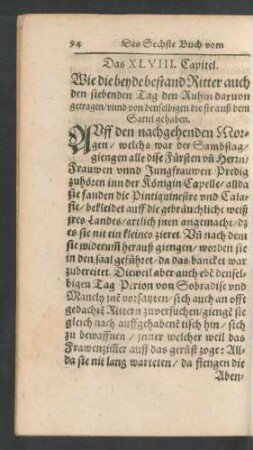 94 Das Sechste Buch vom
Das XLVIII. Capitel.
Wie die beyde bestand Ritter auch
den siebenden Tag den Ruhm daruon
getragen/ vnnd von denselbigen die sie auß dem
Sattel gehaben.
AVff den nachgehenden Mor-
gen/ welchs war der Sambstag/
giengen alle dise Fürsten vñ Herrn/
Frauwen vnnd Jungfrauwen Predig
zuhören inn der Königin Capelle/ allda
sie fanden die Pintiquinestre vnd Cala-
fie/ bekleidet auff die gebräuchliche weiß
jres Landes/ artlich jnen angemacht/ dz
es sie nit ein kleines zieret. Vñ nach dem
sie widerumb herauß giengen/ worden sie
in den saal geführt/ da das bancket war
zubereitet. Dieweil aber auch ebē denself-
bigen Tag Perion von Sobradise vnd
Manely jnē vorsatzten/ sich auch an offt
gedachtē Rittern zuuersuchen/ giengē sie
gleich nach auffgehabenē tisch hin/ sich
zu bewaffnen/ inner welcher weil das
Frawenzim̃er auff das gerüst zoge: All-
da sie nit lang warteten/ da fiengen die
Aben-